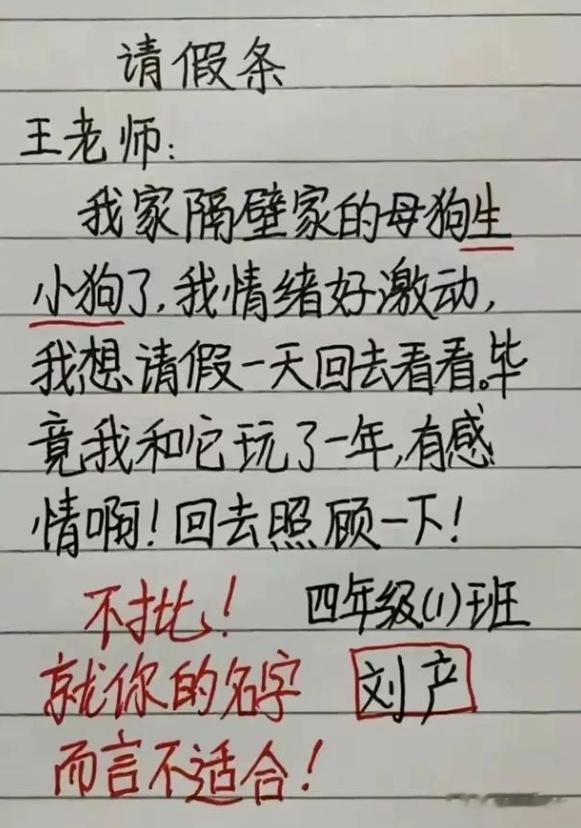 请假条
王老师:
我家隔壁家的母狗生
小狗了,我情绪好激动,
我想请假一天回去看看。毕
竟我和它玩了一年,有感
情啊!回去照顾一下!
四年级(1)班
刘产
不批!
就你的名字
而言不适合!